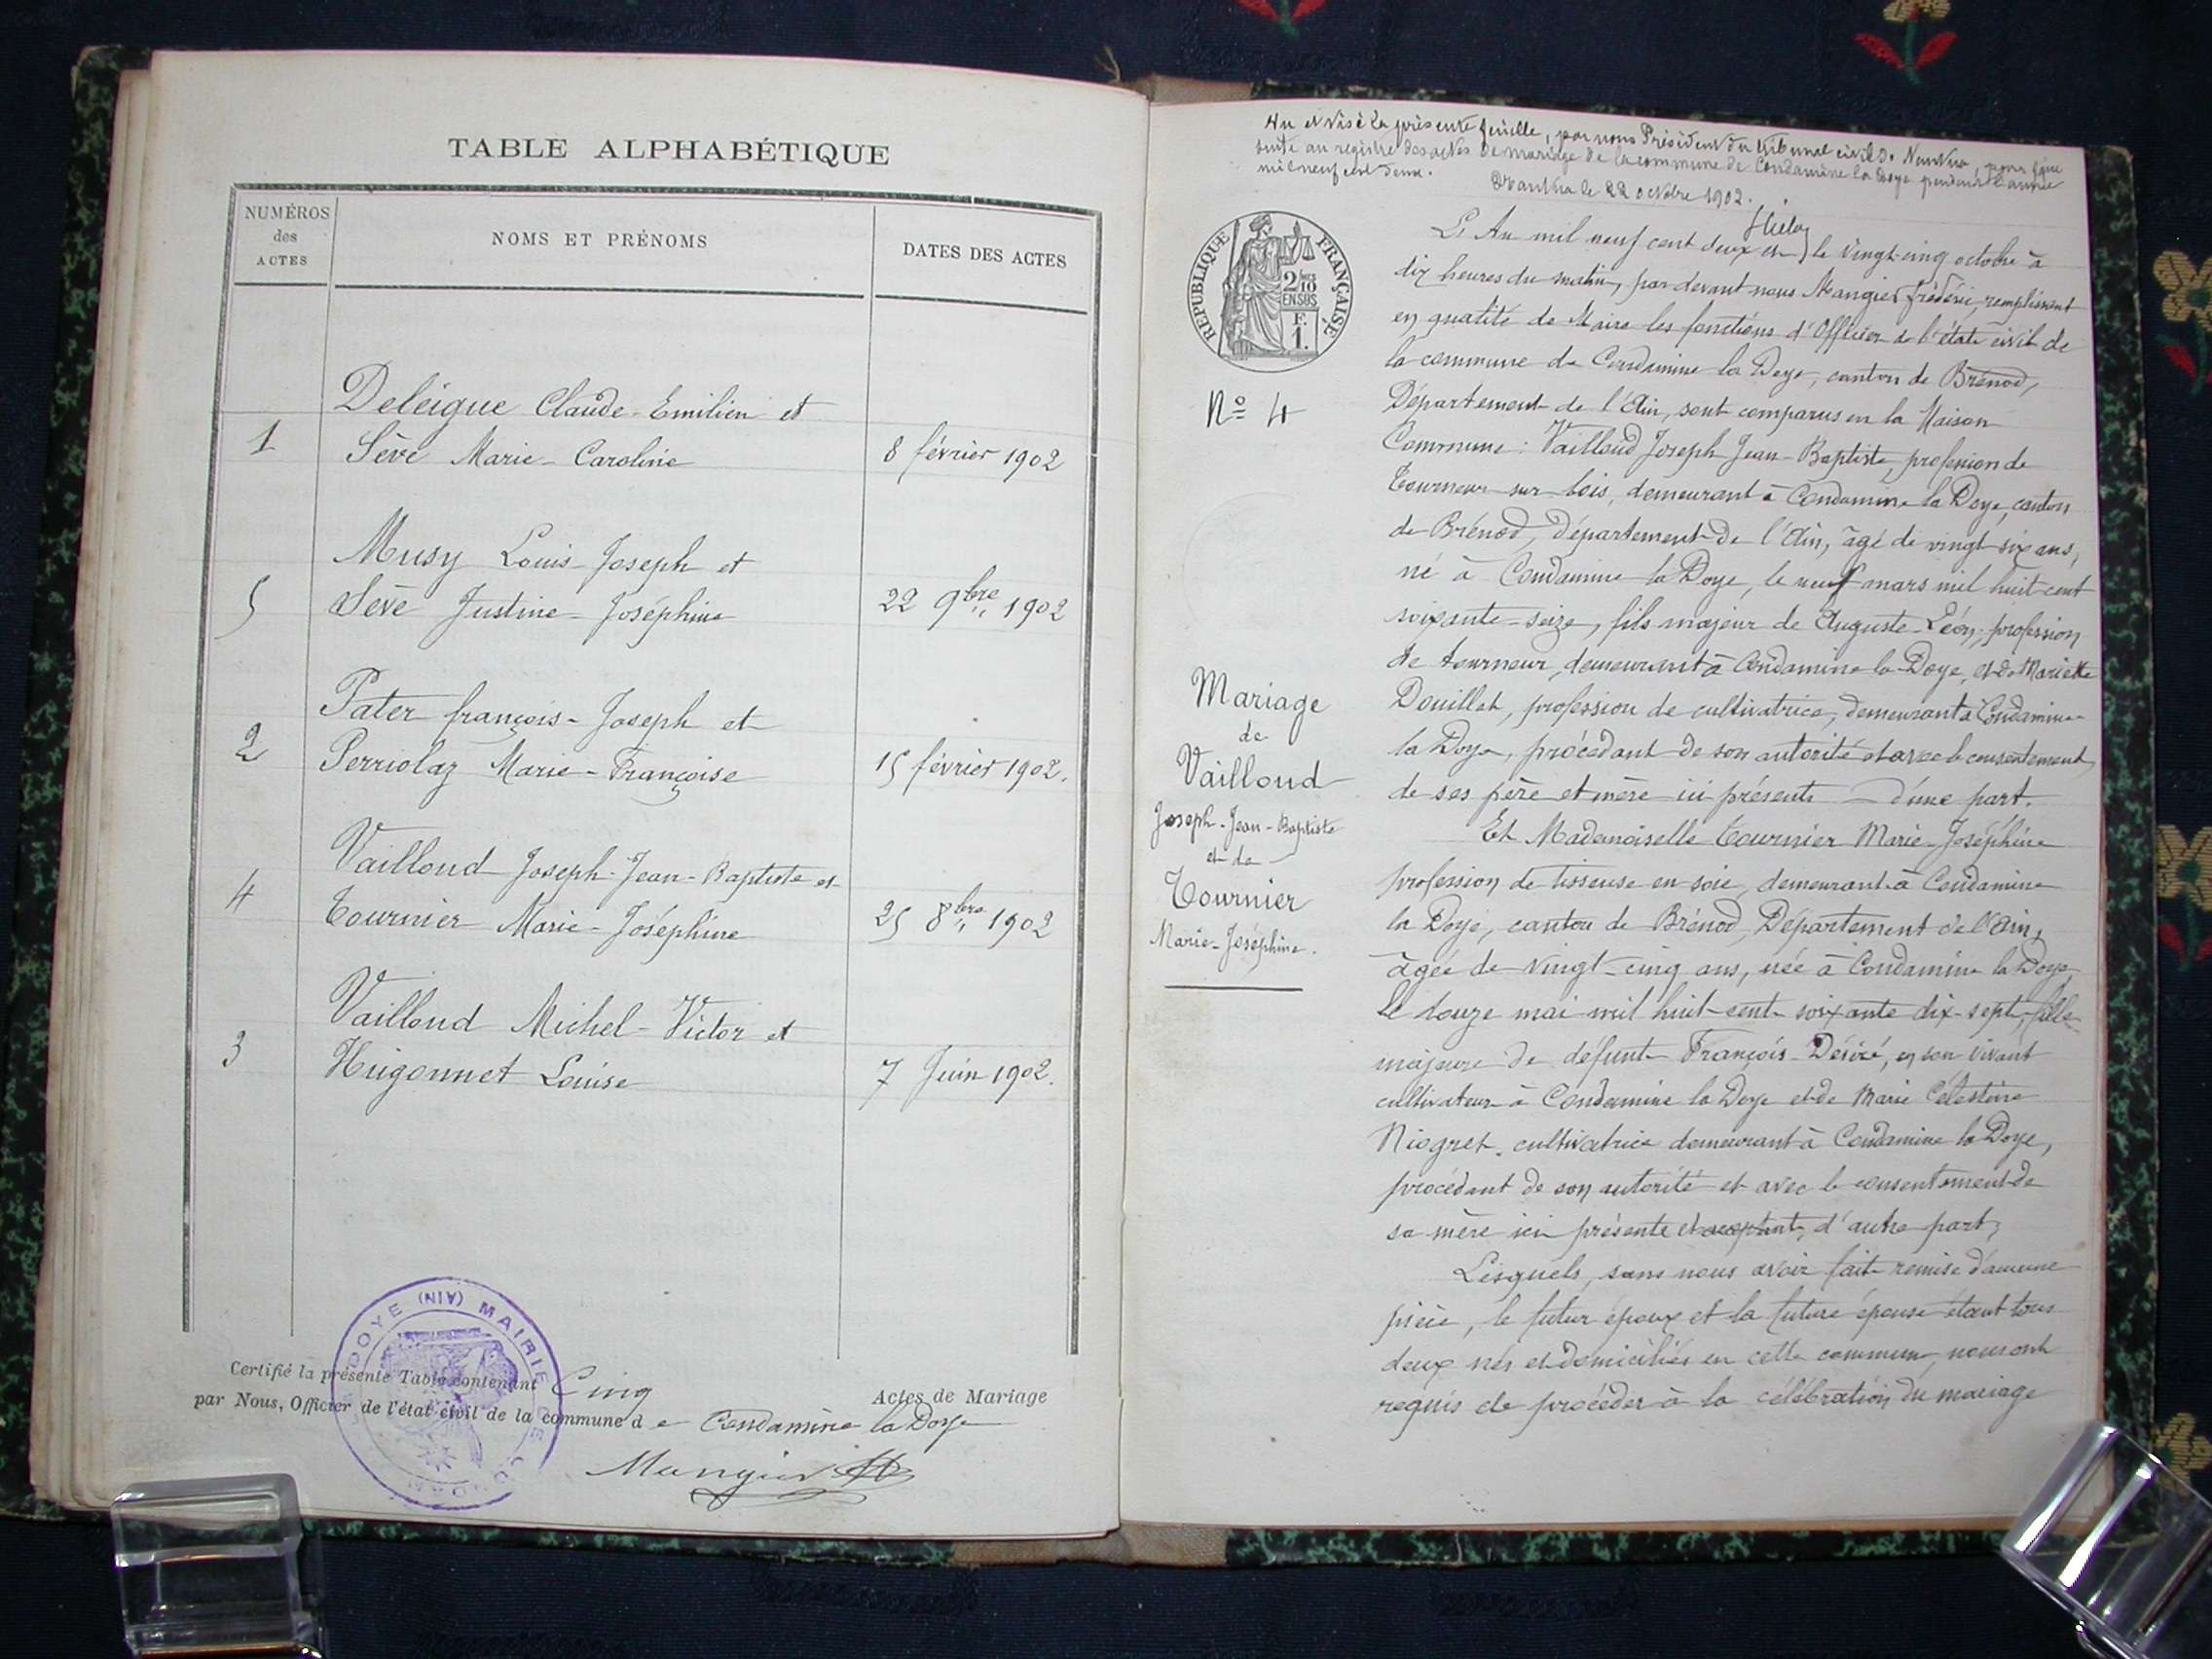 TABLE ALPHABÉTIQUE
NUMÉROS
des
ACTES
NOMS ET PRÉNOMS
DATES DES ACTES
Deléigue Claude-Emilien et
1 Sève Marie-Caroline 8 février 1902
Musy Louis-Joseph et
5 Sève Justine-Joséphine 22 9bre 1902
Pater françois-Joseph et
2 Perriolaz Marie-Françoise 15 février 1902.
Vailloud Joseph-Jean-Baptiste et
4 Tournier Marie-Joséphine 25 8bre 1902
Vailloud Michel-Victor et
3 Hugonnet Louise 7 Juin 1902.
Certifié la présente Table contenant Cinq Actes de Mariage
par Nous, Officier de l'état civil de la commune de Condamine la Doye
Mangier
DOYE (AIN) MAIRIE DE CO
Vu et visé la présente feuille, par nous Président du tribunal civil de Nantua, pour faire
suite au registre des actes de mariage de la commune de Condamine la Doye pendant l'année
mil neuf cent deux.
Nantua le 22 octobre 1902.
RÉPUBLIQUE FRANÇAISE
2/10
EN SUS
F.
1.
Nº 4
Mariage
de
Vailloud
Joseph-Jean-Baptiste
et de
Tournier
Marie-Joséphine.
L'An mil neuf cent deux et le vingt-cinq octobre à
dix heures du matin, par devant nous Mangier frédéric, remplissant
en qualité de Maire les fonctions d'Officier de l'état civil de
la commune de Condamine la Doye, canton de Brénod,
Département de l'Ain, sont comparus en la Maison
Commune : Vailloud Joseph Jean-Baptiste, profession de
Tourneur sur bois, demeurant à Condamine la Doye, canton
de Brénod, Département de l'Ain, âgé de vingt-six ans,
né à Condamine la Doye, le neuf mars mil huit-cent
soixante-seize, fils majeur de Auguste-Léon, profession
de tourneur, demeurant à Condamine la Doye, et de Mariette
Douillet, profession de cultivatrice, demeurant à Condamine
la Doye, procédant de son autorité et avec le consentement
de ses père et mère ici présents d'une part.
Et Mademoiselle Tournier Marie-Joséphine
profession de tisseuse en soie, demeurant à Condamine
la Doye, canton de Brénod, Département de l'Ain,
âgée de vingt-cinq ans, née à Condamine la Doye
le douze mai mil huit-cent soixante dix-sept, fille
majeure de défunt François-Désiré, en son vivant
cultivateur à Condamine la Doye et de Marie Célestine
Niogret, cultivatrice demeurant à Condamine la Doye,
procédant de son autorité et avec le consentement de
sa mère ici présente et acceptant, d'autre part,
Lesquels, sans nous avoir fait remise d'aucune
pièce, le futur époux et la future épouse étant tous
deux nés et domiciliés en cette commune, nous ont
requis de procéder à la célébration du mariage